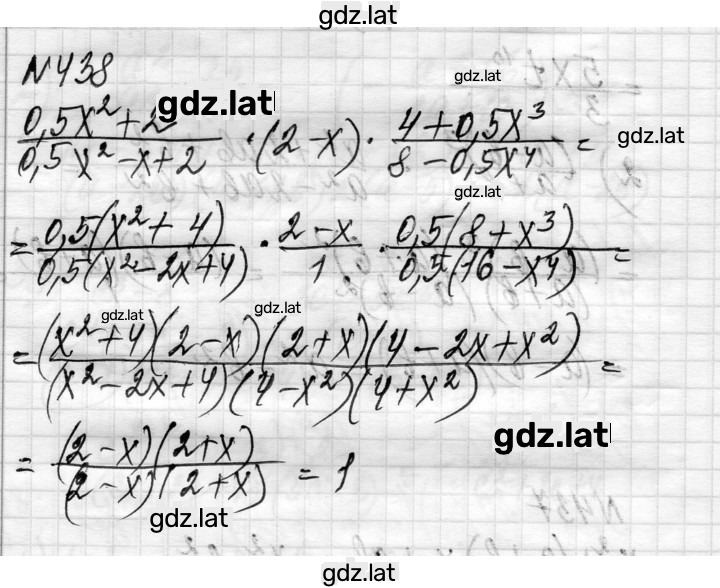 gdz.lat
N438
gdz.lat
(0,5x² + 2)/(0,5x² - x + 2) · (2 - x) · (4 + 0,5x³)/(8 - 0,5x⁴) =
gdz.lat
gdz.lat
gdz.lat
= 0,5(x² + 4)/0,5(x² - 2x + 4) · (2 - x)/1 · 0,5(8 + x³)/0,5(16 - x⁴) =
gdz.lat
gdz.lat
= (x² + 4)(2 - x)(2 + x)(4 - 2x + x²)/(x² - 2x + 4)(4 - x²)(4 + x²) =
gdz.lat
= (2 - x)(2 + x)/(2 - x)(2 + x) = 1
gdz.lat
N437
gdz.lat